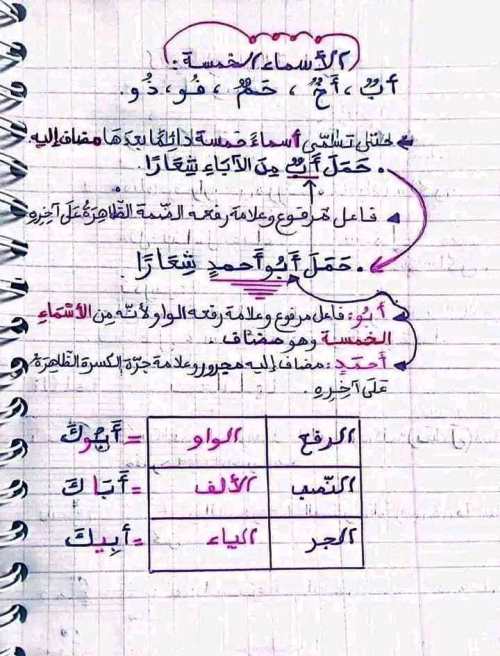 الأسماء الخمسة:
أبٌ، أخٌ، حَمٌ، فُو، ذُو.
لكي تسمّى أسماءً خمسة دائمًا بعدها مضاف إليه
. حَمَلَ أَبٌ مِنَ الآبَاءِ شِعَارًا
فاعل مرفوع وعلامة رفعه الضمة الظاهرة على آخره
. حَمَلَ أَبُو أَحمدٍ شِعَارًا
أبُو: فاعل مرفوع وعلامة رفعه الواو لأنّه مِن الأسْماءِ
الخمسة وهو مضاف.
أحمَدٍ: مضاف إليه مجرور وعلامة جرّه الكسرة الظاهرة
عَلَى آخِرِهِ.
الرفع الواو = أَبُوكَ
النّصب الألف = أَبَاكَ
الجر الياء = أبِيكَ